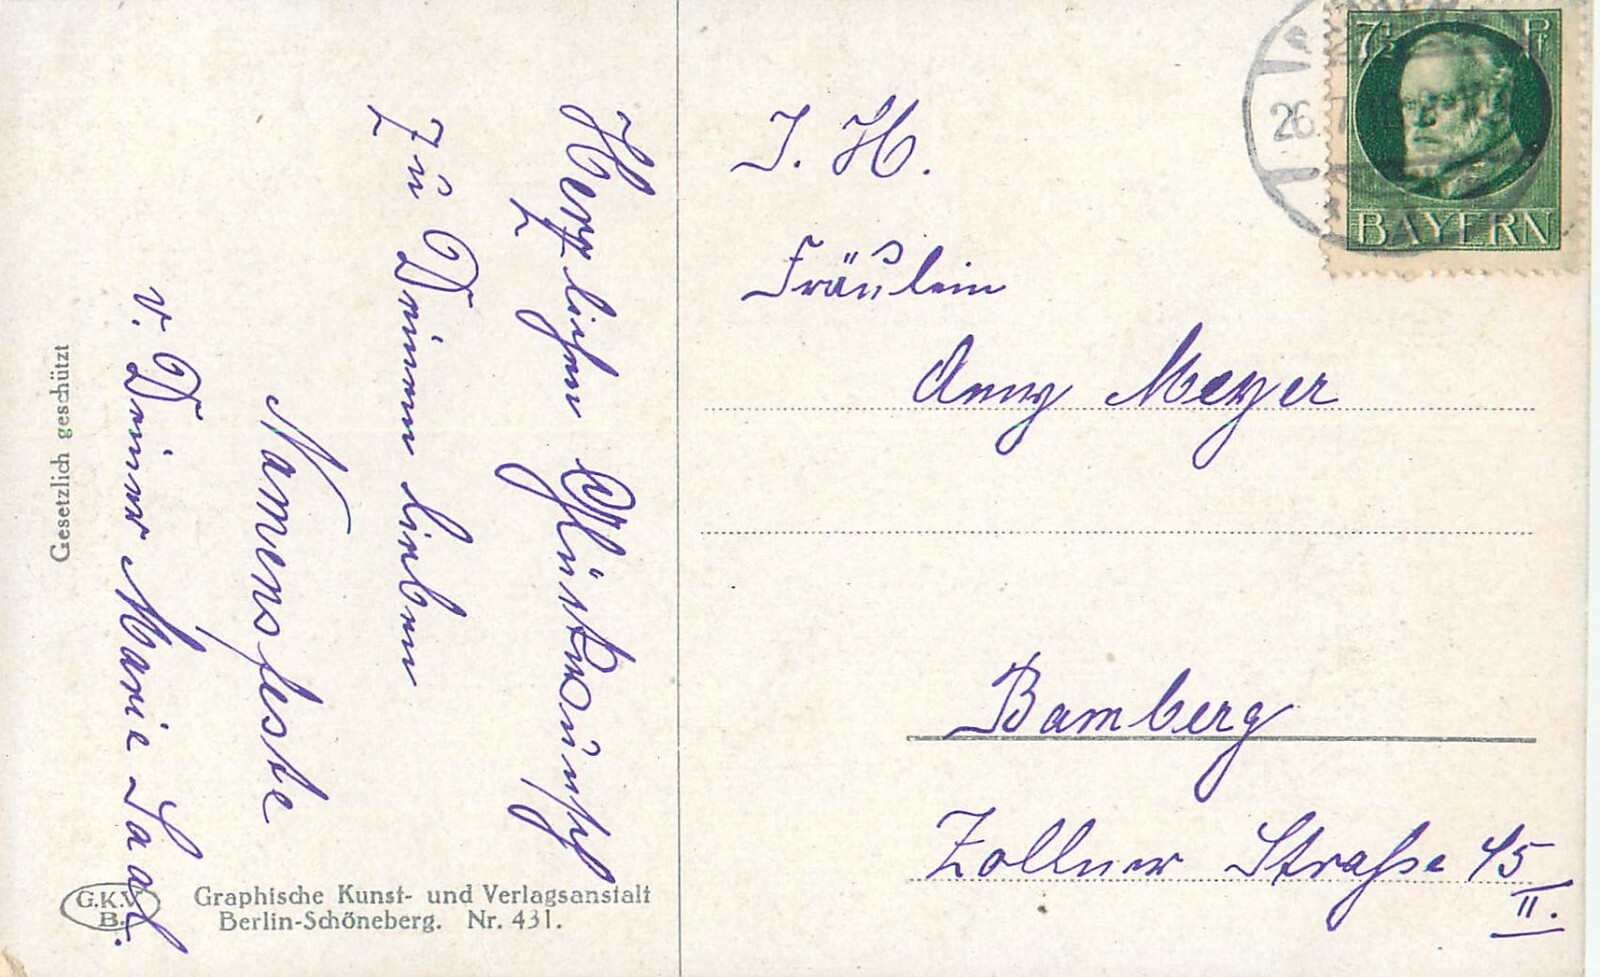 Herzlichen Glückwunsch
zu Deinem lieben
Namensfeste
v. Deiner Marie Saal.
Gesetzlich geschützt
G.K.V.
B.
Graphische Kunst- und Verlagsanstalt
Berlin-Schöneberg. Nr. 431.
7½ Pf
BAYERN
26. 7
J. H.
Fräulein
Anny Meyer
Bamberg
Zollner Straße 45
II.